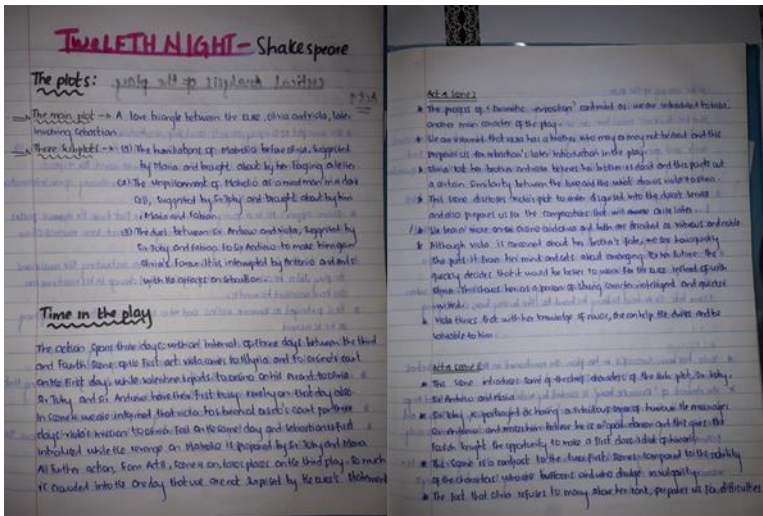 TWELETH NIGHT- Shakespeare
The plots:
The main plot → A love triangle between the duke, olivia and viola, later
involving Sebastian
There subplots → (1) The humiliations of Malvolio before olivia, suggested
by Maria and brought about by her Forging a letter.
(2) The imprisonment of Malvolio as a mad man in a dark
cell, suggested by Sir Toby and brought about by him
, Maria and Fabian.
(3) The duel between Sir Andrew and viola, suggested by
Sir Toby and Fabian to Sir to make him gain
olivia's Favour. It is interrupted by Antonio and
with the on Sebastian.
Time in the play
The action spans three days with an interval of three days between the third
and Fourth Scene of the First act. viola comes to Illyria and to orsino's court
on the First day, while valentine reports to orsino on his errand to olivia.
Sir Toby and Sir Andrew have their First on that day also.
In scene 4 we are informed that viola has been at court for three
days. viola's mission to olivia Fall on the same day and Sebastian is First
introduced while the revenge on Malvolio is prepared by Sir Toby and Maria
All further action, From Act , scene on, takes place on the third . So much
is crowded into the one day that we are not surprised by the statement
Act 1 Scene 2
The process of 'Dramatic exposition' continued as we are introduced to viola,
another main character of the play.
We are informed that viola has a brother who may or may not be dead and this
prepares us for Sebastian's later introduction in the play.
olivia lost her brother and viola believes her brother is dead and this points out
a certain Similarity between the two and this what draws viola to olivia.
This scene discloses viola's plot to enter disguised into the duke's service
and also prepares us for the complications that will arise later.
We learn more on orsino and olivia and both are described as virtuous and noble.
Although viola is concerned about her brother's fate, we see how quickly
she puts it from her mind and sets about arranging for her future. She
quickly decides that it would be better to work for the duke instead of with
olivia. This shows her as a person of strong character, intelligent and quick
witted.
Viola thinks that with her knowledge of music, she can help the duke and be
valuable to him.
Act 1 scene 3
This scene introduces some of the characters of the sub plot, Sir Toby,
Sir and Maria
Sir Toby is portrayed as having a ridiculous sense of humour. He
Sir and makes him believe he is a good dancer and this gives that
foolish knight the opportunity to make a first of himself.
This scene is a contrast to the two first scenes compared to the nobility
of the characters who are buffoons and who indulge in vulgarity.
The fact that olivia refuses to marry above her rank, prepares us for difficulties